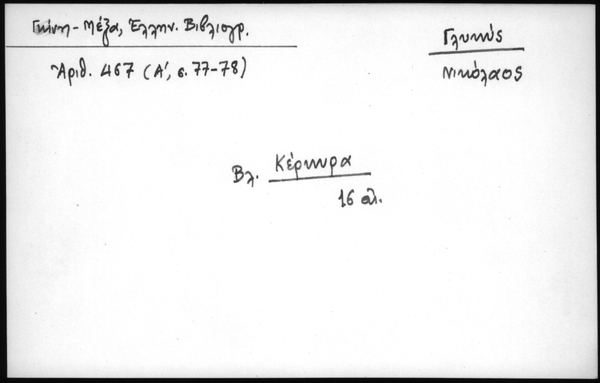 Γκίνη - Μέξα, Ἑλλην. Βιβλιογρ.
Ἀριθ. 467 (Α', σ. 77-78)
Γλυκύς
Νικόλαος
Βλ. Κέρκυρα
16 αἰ.